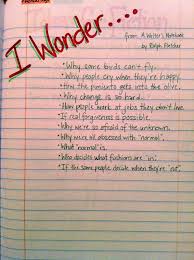 I Wonder....
from A Writer's Notebook
by Ralph Fletcher
• Why some birds can't fly.
• Why people cry when they're happy.
• How the pimiento gets into the olive.
• Why change is so hard.
• How people work at jobs they don't love.
• If real forgiveness is possible.
• Why we're so afraid of the unknown.
• Why we're all obsessed with "normal".
• What "normal" is.
• Who decides what fashions are "in".
• If the same people decide when they're "out".